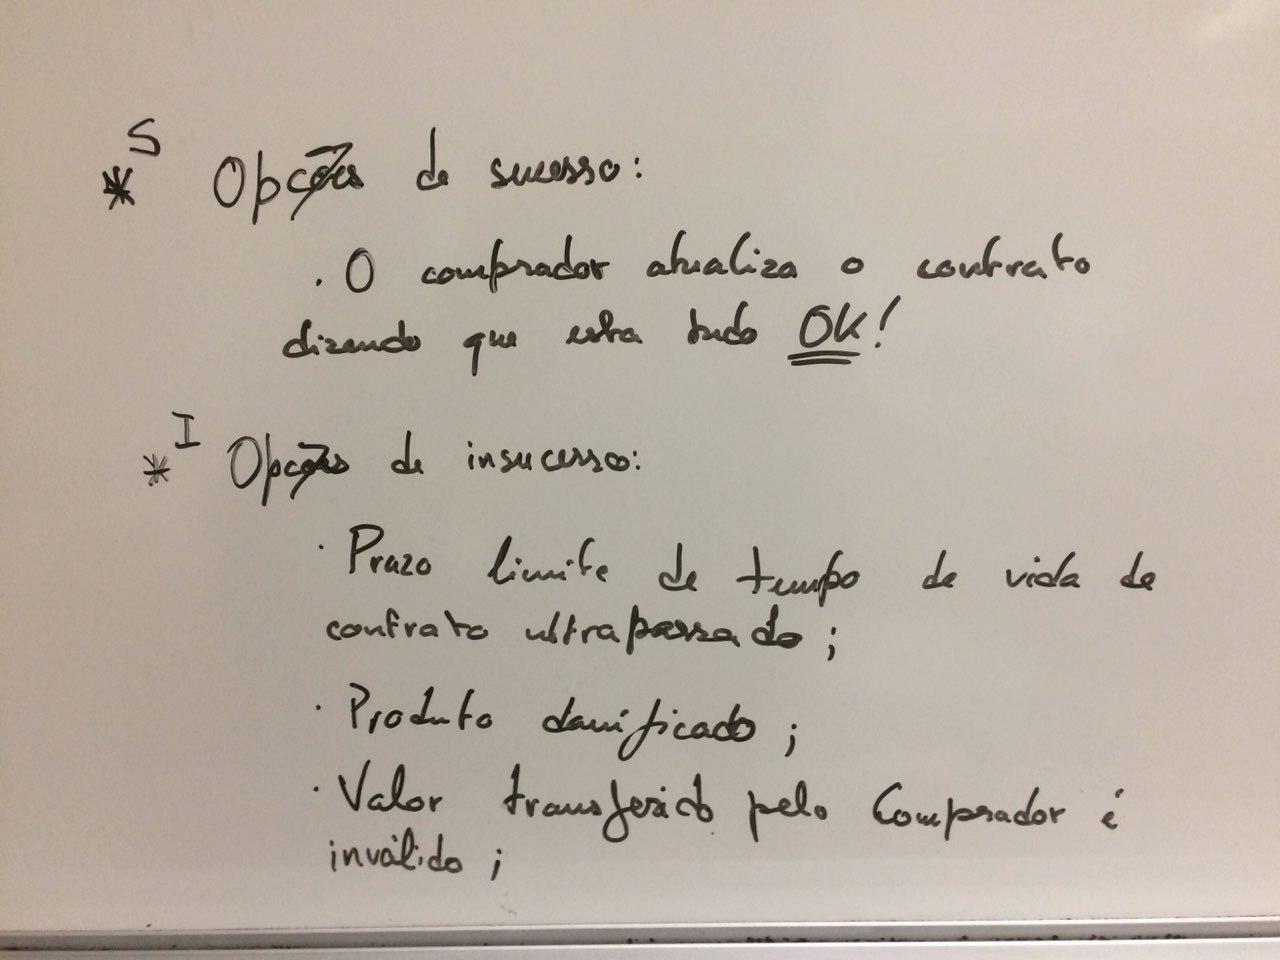 *S Opções de sucesso:
. O comprador atualiza o contrato
dizendo que esta tudo OK!
*I Opções de insucesso:
· Prazo limite de tempo de vida de
contrato ultrapassado ;
· Produto danificado ;
· Valor transferido pelo Comprador é
inválido ;